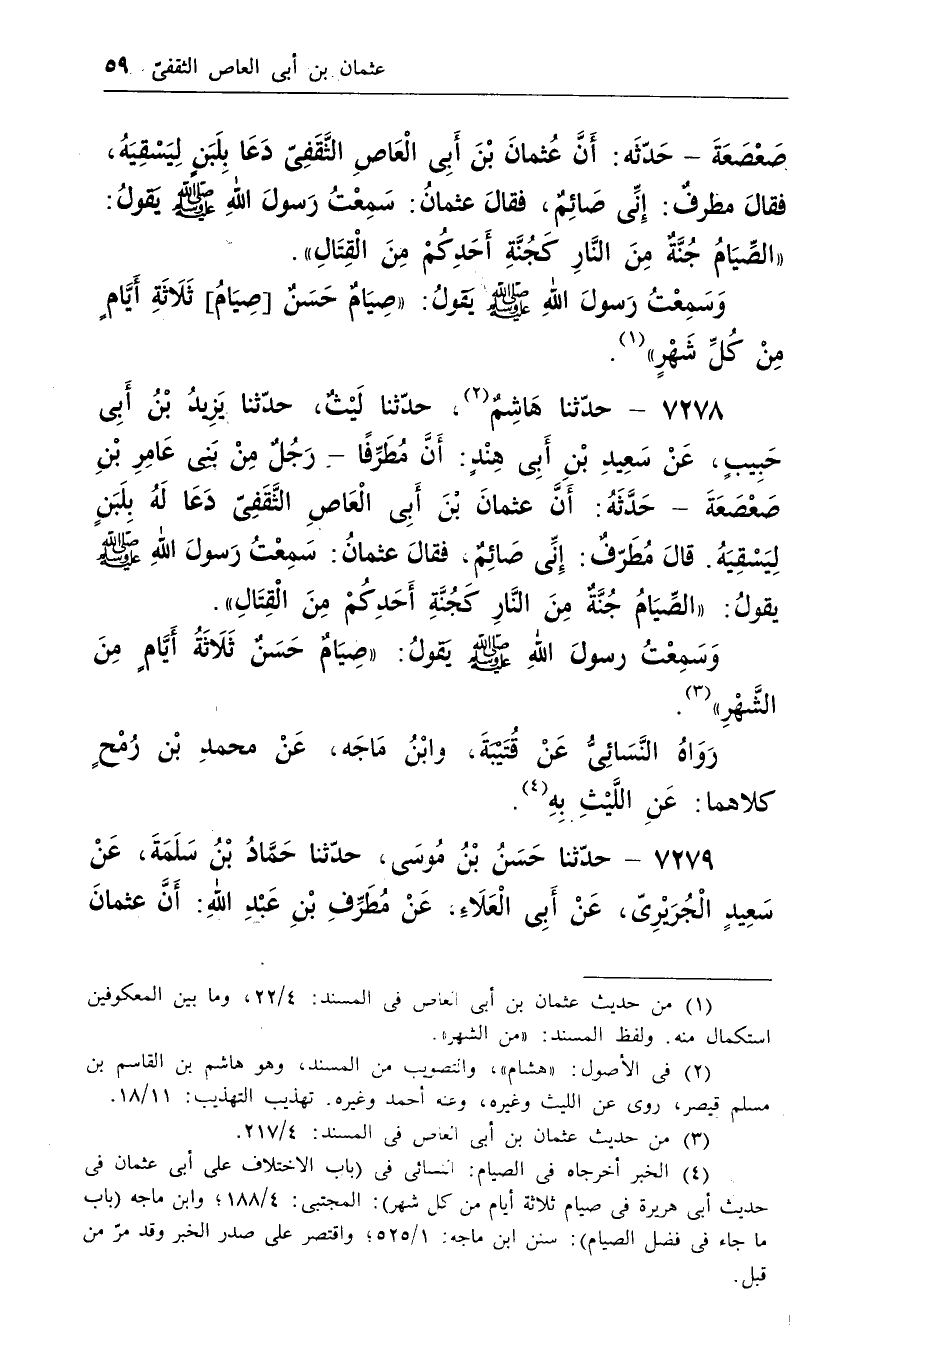 عثمان بن أبى العاص الثقفىّ ٥٩
صَعْصَعَةَ - حَدّثَه: أَنَّ عُثمانَ بْنَ أَبِى الْعَاصِ الثَّقَفِىّ دَعَا بِلَبَنٍ لِيَسْقِيَهُ،
فقالَ مطرفٌ: إِنِّى صَائِمٌ، فقالَ عثمانُ: سَمِعْتُ رَسولَ اللهِ ﷺ يَقولُ:
«الصِّيَامُ جُنَّةٌ مِنَ النَّارِ كَجُنَّةِ أَحَدِكُمْ مِنَ الْقِتَالِ».
وَسَمِعْتُ رَسولَ اللهِ ﷺ يَقولُ: «صِيَامٌ حَسَنٌ [صِيَامُ] ثَلَاثَةِ أَيَّامٍ
مِنْ كُلِّ شَهْرٍ»(١).
٧٢٧٨ - حدّثنا هَاشِمٌ(٢)، حدّثنا لَيْثٌ، حدّثنا يَزِيدُ بْنُ أَبِى
حَبِيبٍ، عَنْ سَعِيدِ بْنِ أَبِى هِنْدٍ: أَنَّ مُطَرِّفًا - رَجُلٌ مِنْ بَنِى عَامِرِ بْنِ
صَعْصَعَةَ - حَدَّثَهُ: أَنَّ عثمانَ بْنَ أَبِى الْعَاصِ الثَّقَفِىّ دَعَا لَهُ بِلَبَنٍ
لِيَسْقِيَهُ. قالَ مُطَرّفٌ: إِنِّى صَائِمٌ، فقالَ عثمانُ: سَمِعْتُ رَسولَ اللهِ ﷺ
يقولُ: «الصِّيَامُ جُنَّةٌ مِنَ النَّارِ كَجُنَّةِ أَحَدِكُمْ مِنَ الْقِتَالِ».
وَسَمِعْتُ رسولَ اللهِ ﷺ يَقولُ: «صِيَامٌ حَسَنٌ ثَلَاثَةُ أَيَّامٍ مِنَ
الشَّهْرِ»(٣).
رَوَاهُ النَّسَائِىُّ عَنْ قُتَيْبَةَ، وابْنُ مَاجَه، عَنْ محمدِ بْن رُمْحٍ
كلاهما: عَنِ اللَّيْثِ بِهِ(٤).
٧٢٧٩ - حدّثنا حَسَنُ بْنُ مُوسَى، حدّثنا حَمَّادُ بْنُ سَلَمَةَ، عَنْ
سَعِيدٍ الْجُرَيْرِىّ، عَنْ أَبِى الْعَلَاءِ، عَنْ مُطَرِّفِ بْنِ عَبْدِ اللهِ: أَنَّ عثمانَ
(١) من حديث عثمان بن أبى العاص فى المسند: ٢٢/٤، وما بين المعكوفين
استكمال منه. ولفظ المسند: «من الشهر».
(٢) فى الأصول: «هشام»، والتصويب من المسند، وهو هاشم بن القاسم بن
مسلم قيصر، روى عن الليث وغيره، وعنه أحمد وغيره. تهذيب التهذيب: ١٨/١١.
(٣) من حديث عثمان بن أبى العاص فى المسند: ٢١٧/٤.
(٤) الخبر أخرجاه فى الصيام: النسائى فى (باب الاختلاف على أبى عثمان فى
حديث أبى هريرة فى صيام ثلاثة أيام من كل شهر): المجتبى: ١٨٨/٤؛ وابن ماجه (باب
ما جاء فى فضل الصيام): سنن ابن ماجه: ٥٢٥/١؛ واقتصر على صدر الخبر وقد مرّ من
قبل.